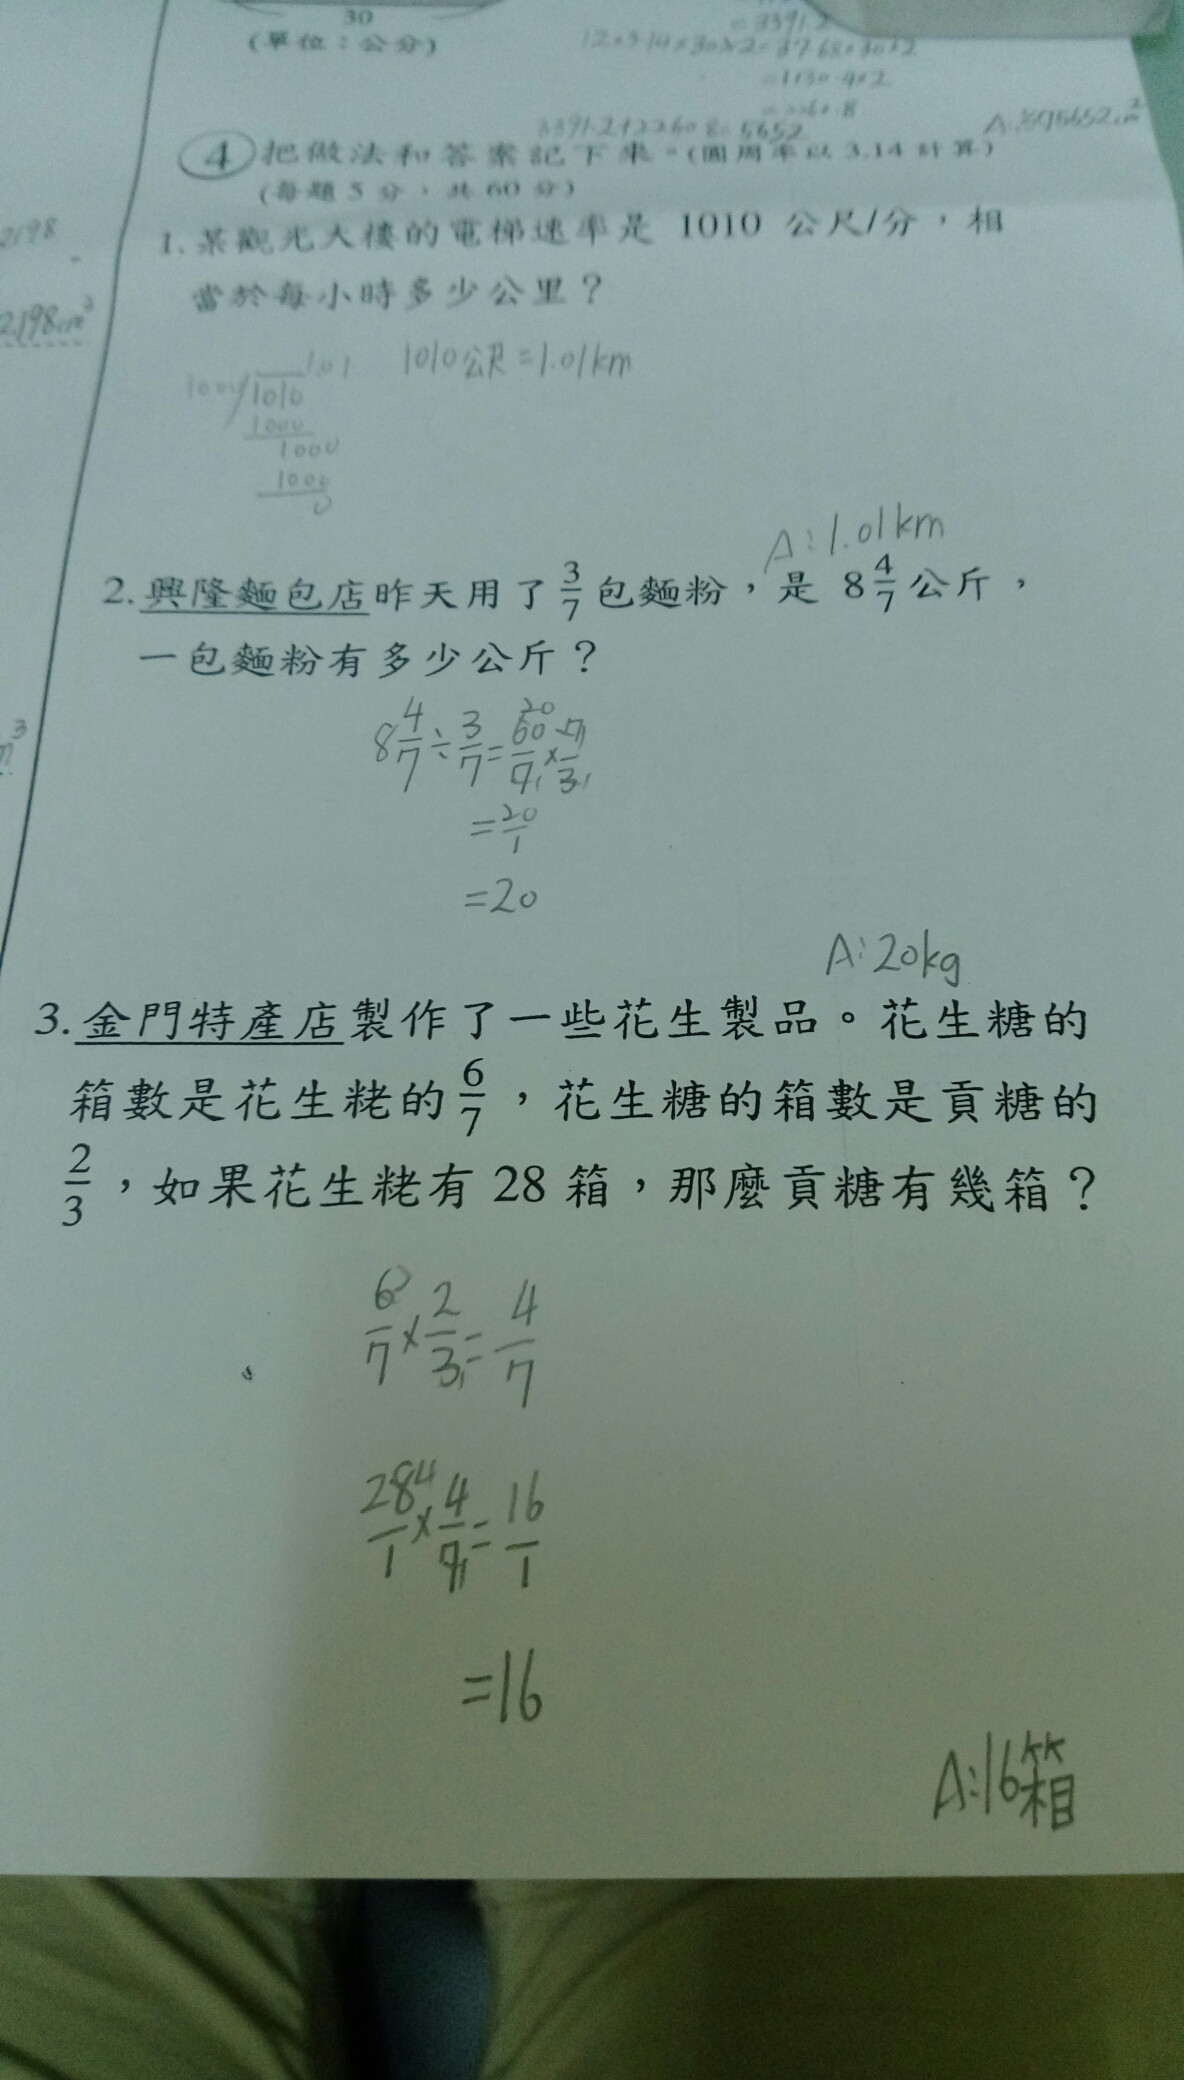 30
(單位：公分)
=3391.2
12×3.14×30×2=37.68×30×2
=1130.4×2
=2260.8
3391.2+2260.8=5652
④把做法和答案記下來。(圓周率以 3.14 計算)
(每題 5 分，共 60 分)
1.某觀光大樓的電梯速率是 1010 公尺/分，相
當於每小時多少公里？
2198
2198cm³
1010公尺=1.01km
1.01
1000/1010
1000
1000
1000
0
A:1.01km
2.興隆麵包店昨天用了 3/7 包麵粉，是 8 4/7 公斤，
一包麵粉有多少公斤？
8 4/7 ÷ 3/7 = 60/7 × 7/3
= 20/1
=20
A:20kg
3.金門特產店製作了一些花生製品。花生糖的
箱數是花生粩的 6/7，花生糖的箱數是貢糖的
2/3，如果花生粩有 28 箱，那麼貢糖有幾箱？
6/7 × 2/3 = 4/7
28/1 × 4/7 = 16/1
=16
A:16箱